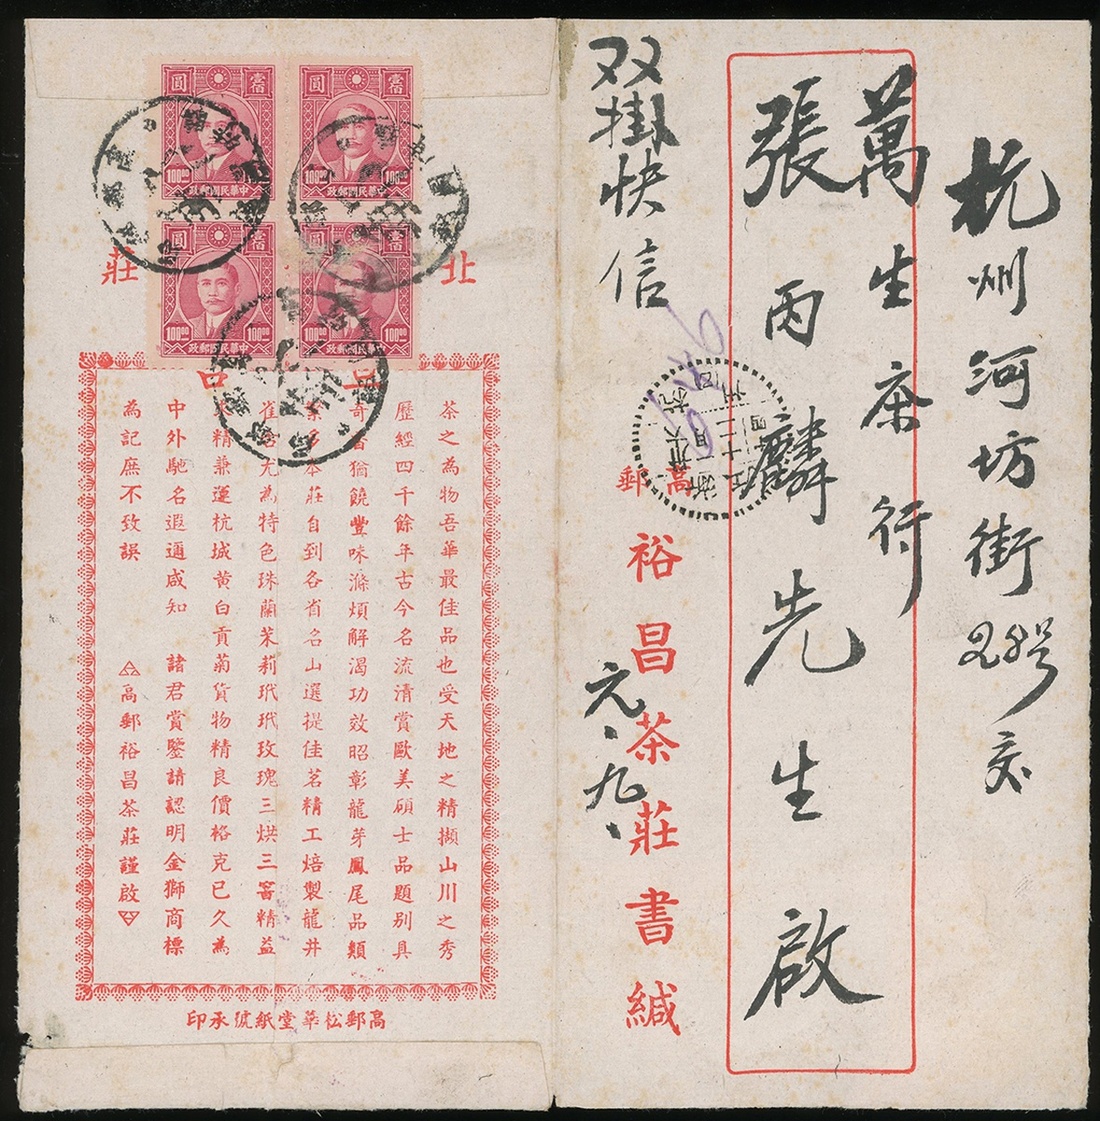 杭州河坊街28号交
萬生茶行
張丙麟先生啟
双掛快信
元.九.
高郵
裕昌茶莊書緘
北
莊
茶之為物吾華最佳品也受天地之精擷山川之秀
歷經四千餘年古今名流清賞歐美碩士品題别具
奇香猶饒豐味滌煩解渴功效昭彰龍芽鳳尾品類
本莊自到各省名山選提佳茗精工焙製龍井
雀舌尤為特色珠蘭茉莉玳玳玫瑰三烘三窨精益
精兼運杭城黄白貢菊貨物精良價格克已久為
中外馳名遐邇咸知 諸君賞鑒請認明金獅商標
為記庶不致誤 高郵裕昌茶莊謹啟
高郵松華堂紙號承印
壹佰 圓
100.00 100.00
中華民國郵政
壹佰 圓
100.00 100.00
中華民國郵政
壹佰 圓
100.00 100.00
中華民國郵政
壹佰 圓
100.00 100.00
中華民國郵政